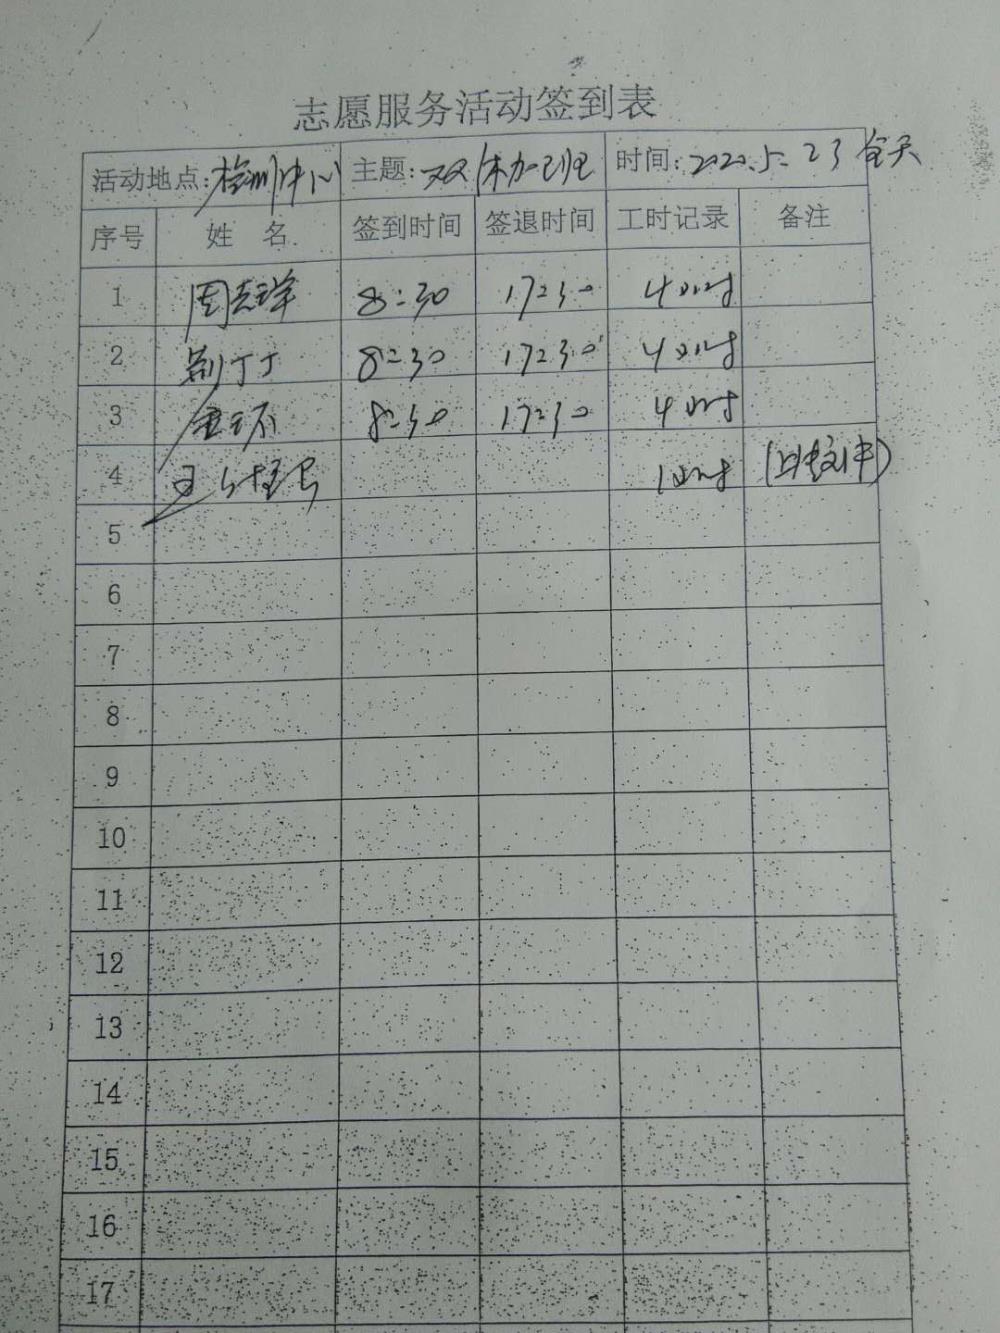 志愿服务活动签到表
活动地点:检测中心 主题:双休加班 时间:2020.5.23 全天
序号 姓 名 签到时间 签退时间 工时记录 备注
1 8:30 17:30 4小时
2 荆丁丁 8:30 17:30 4小时
3 8:30 17:30 4小时
4 1小时
5
6
7
8
9
10
11
12
13
14
15
16
17